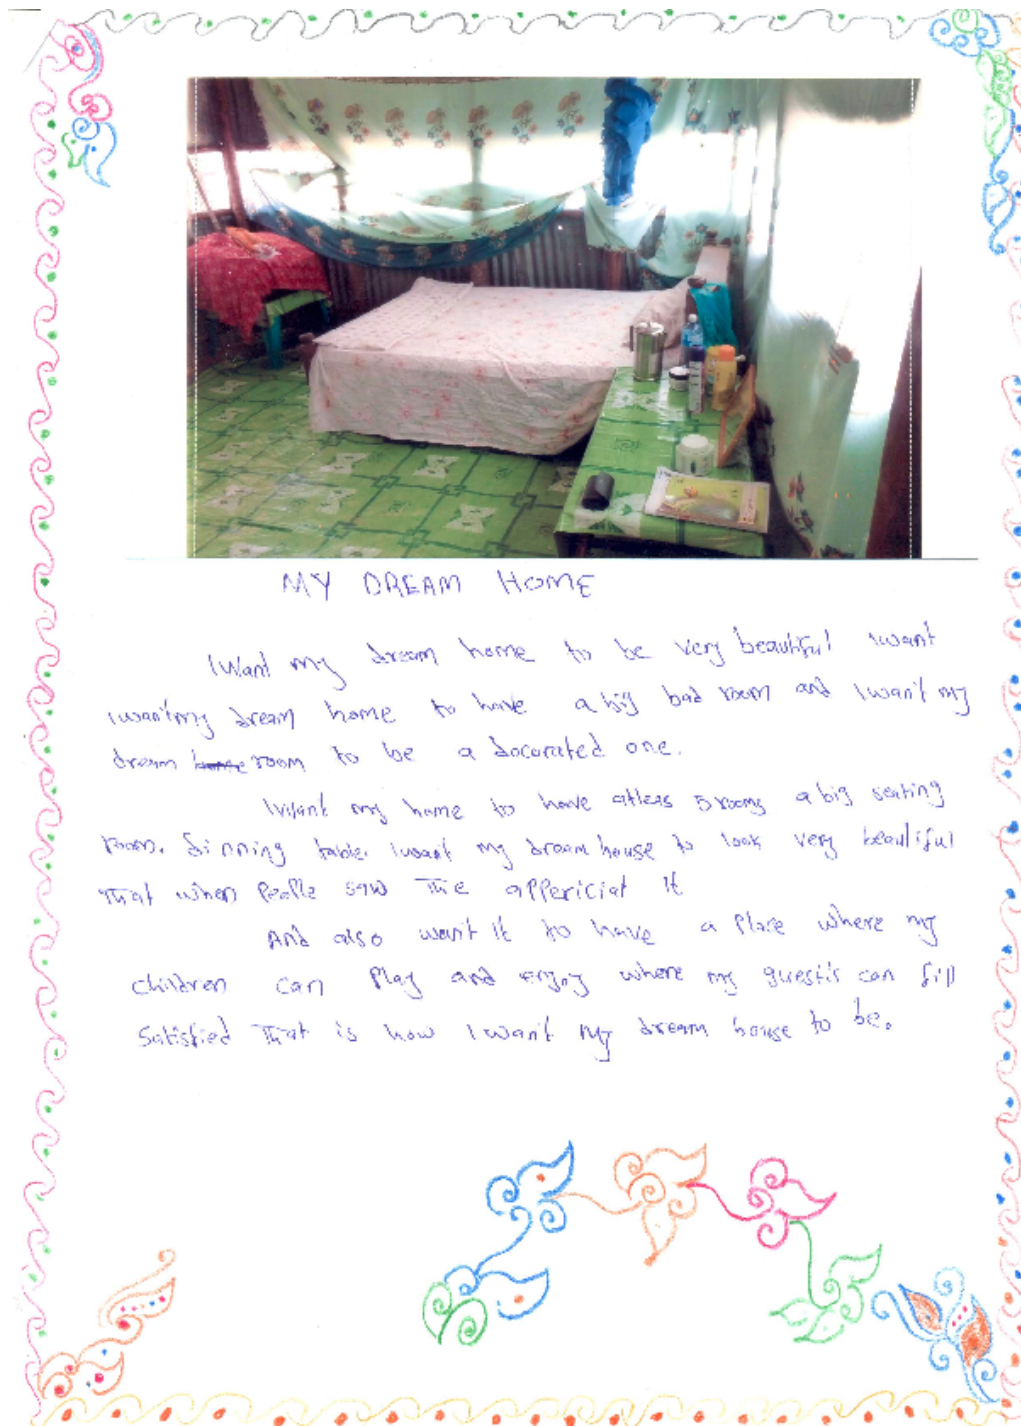 MY DREAM HOME
I Want my dream home to be very beautiful I want
I want my dream home to have a big bad room and I want my
dream home room to be a docorated one.
I Want my home to have atleas 5 rooms a big seating
room. dinning table. I want my dream house to look very beautiful
That when people saw the appericiat it
And also want it to have a place where my
children can play and enjoy where my guest's can fill
satisfied That is how I want my dream house to be.